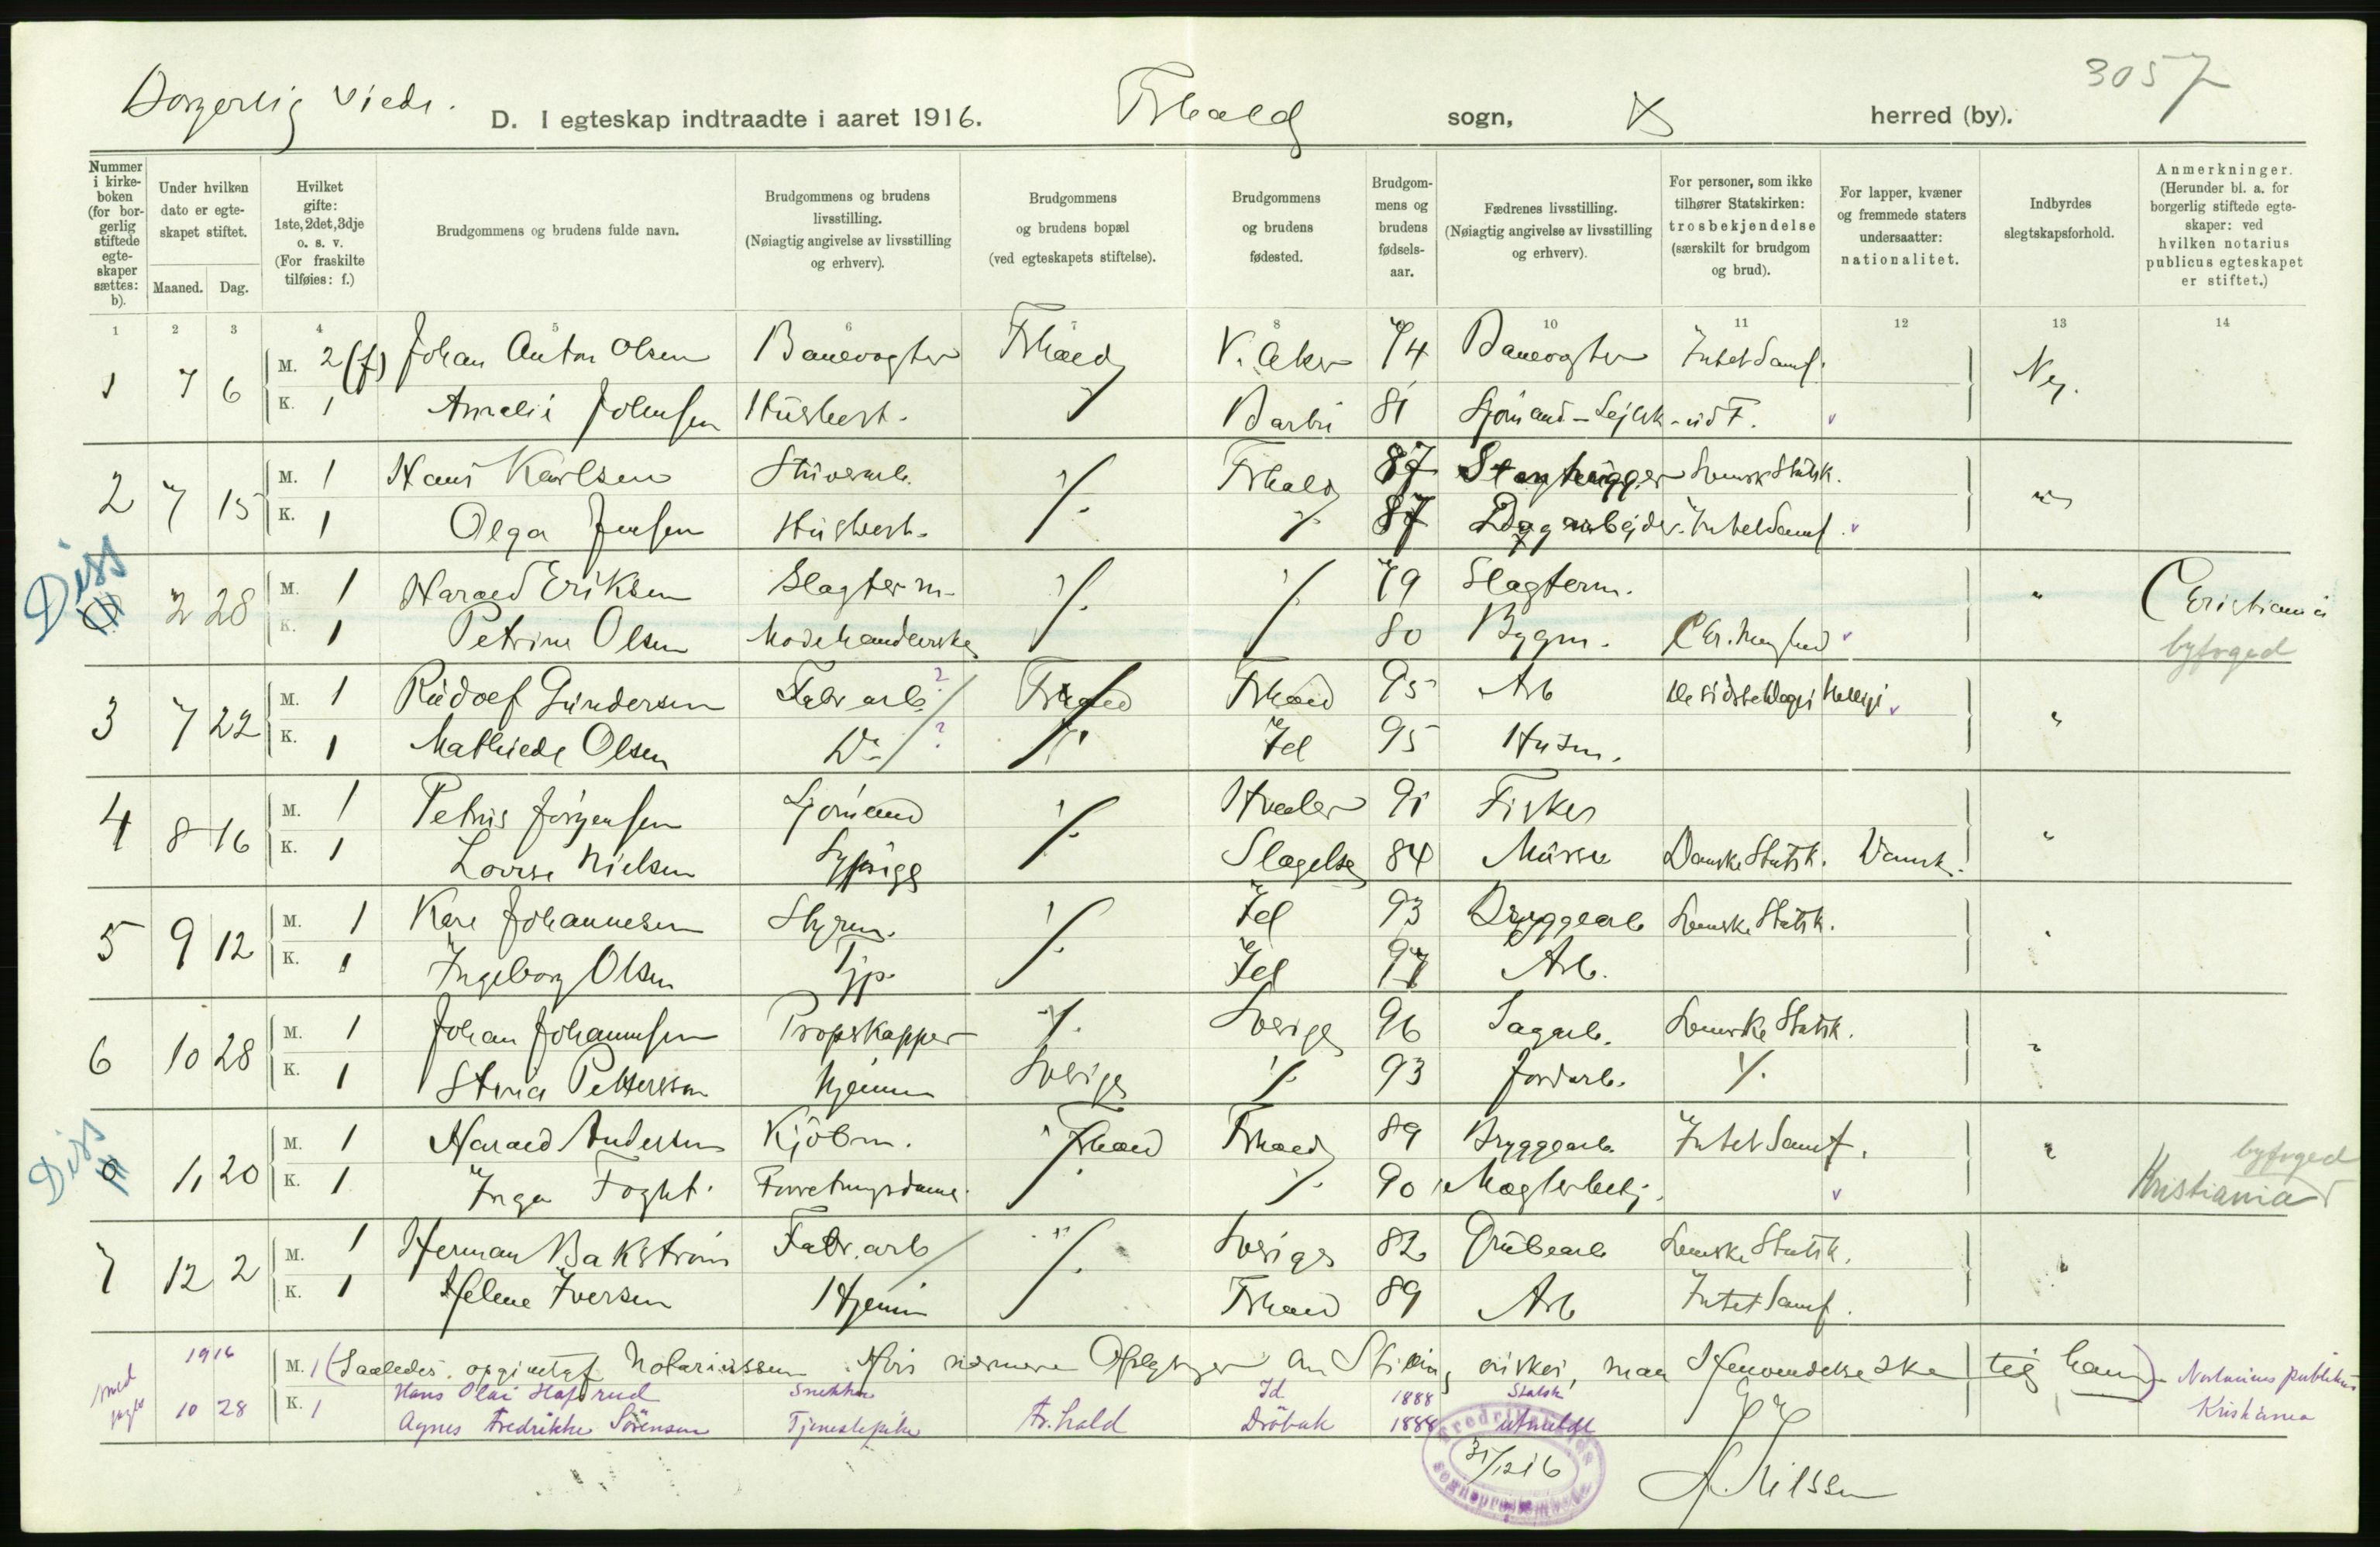 Borgerlig viede.
D. I egteskap indtraadte i aaret 1916.
Frhald sogn, herred (by).
3057
Nummer i kirkeboken (for borgerlig stiftede egteskaper sættes: b).
Under hvilken dato er egteskapet stiftet.
Maaned. Dag.
Hvilket gifte: 1ste, 2det, 3dje o. s. v. (For fraskilte tilføies: f.)
Brudgommens og brudens fulde navn.
Brudgommens og brudens livsstilling. (Nøiagtig angivelse av livsstilling og erhverv).
Brudgommens og brudens bopæl (ved egteskapets stiftelse).
Brudgommens og brudens fødested.
Brudgommens og brudens fødselsaar.
Fædrenes livsstilling. (Nøiagtig angivelse av livsstilling og erhverv).
For personer, som ikke tilhører Statskirken: trosbekjendelse (særskilt for brudgom og brud).
For lapper, kvæner og fremmede staters undersaatter: nationalitet.
Indbyrdes slegtskapsforhold.
Anmerkninger. (Herunder bl. a. for borgerlig stiftede egteskaper: ved hvilken notarius publicus egteskapet er stiftet.)
1 2 3 4 5 6 7 8 10 11 12 13 14
1 7 6 M. 2(f) Johan Anton Olsen Banevogter Frhald V. Aker 74 Banevogter Intet Samf. Nej.
K. 1 Amalie Johnsen Husbest. Barbu 81 Sjömand
2 7 15 M. 1 Hans Karlsen Stuverarb. ". Frhald 87 Stenhugger Svensk Statsk. "
K. 1 Olga Jensen Husbest. ". 87 Dagarbejder. Intet Samf.
Diss
2 28 M. 1 Harald Eriksen Slagterm. ". ". 79 Slagterm. " Christiania
K. 1 Petrine Olsen Modehandlerske 80 Bygm. byfoged
3 7 22 M. 1 Rudolf Gundersen Fabr arb. ? Frhald Frhald 95 Arb De sidste Dages Hellige "
K. 1 Mathilde Olsen Do ? ". Id 95 Husm.
4 8 16 M. 1 Petrus Jörgensen Sjömand ". Hvaler 91 Fisker "
K. 1 Lovise Nielsen Sypige Slagelse 84 Murer Danske Statsk. Dansk.
5 9 12 M. 1 Karl Johannesen Styrm. ". Id 93 Bryggearb Svenske Statsk. "
K. 1 Ingeborg Olsen Tjp. Id 97 Arb.
6 10 28 M. 1 Johan Johannsen Propskapper ". Sverige 96 Sagarb. Svenske Statsk. "
K. 1 Stina Pettersson hjemme Sverige ". 93 Jordarb. ".
Diss
11 20 M. 1 Harald Andersen Kjöbm. Frhald Frhald 89 Bryggearb. Intet Samf. " byfoged
K. 1 Inga Foght. Forretningsdame. ". 90 Kristiania
7 12 2 M. 1 Herman Bakström Fabr. arb ". Sverige 82 Grubearb Svenske Statsk. "
K. 1 Helene Iversen Hjemm Frhald 89 Arb Intet Samf.
1916 M. 1 (Saaledes opgivet af Notariussen Hvis nærmere Oplysninger om Stilling önskes, maa Henvendelse ske til ham) Notarius publikus
Hans Olai Hafsrud Snekker Id 1888 Statsk Kristiania
10 28 K. 1 Agnes Fredrikke Sörensen Tjenestepike Fr.hald Dröbak 1888 utmeldt
31/12 16
Nilssen